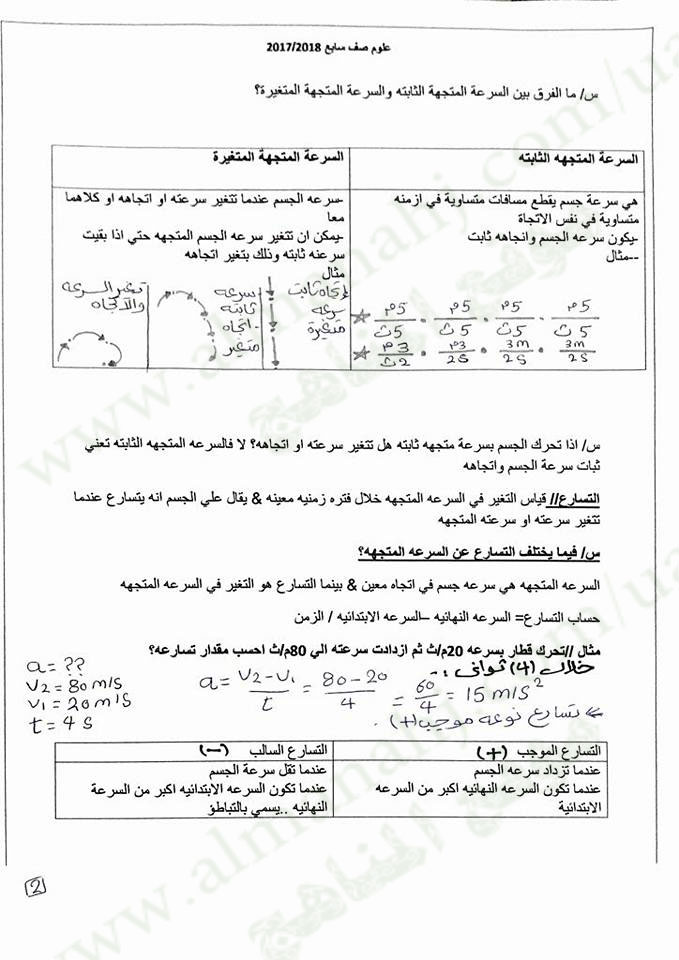 علوم صف سابع 2017/2018
س/ ما الفرق بين السرعة المتجهة الثابته والسرعة المتجهة المتغيرة؟
السرعة المتجهه الثابته
هي سرعة جسم يقطع مسافات متساوية في ازمنه
متساوية في نفس الاتجاة
-يكون سرعه الجسم واتجاهه ثابت
--مثال
5م/5ث . 5م/5ث . 5م/5ث . 5م/5ث
3م/2ث . 3م/2s . 3m/2s . 3m/2s
السرعة المتجهة المتغيرة
-سرعه الجسم عندما تتغير سرعته او اتجاهه او كلاهما
معا
-يمكن ان تتغير سرعه الجسم المتجهه حتي اذا بقيت
سرعته ثابته وذلك بتغير اتجاهه
مثال
إتجاه ثابت
سرعة
متغيرة
سرعه
ثابته
- اتجاه
متغير
تغير السرعه
والاتجاه
س/ اذا تحرك الجسم بسرعة متجهه ثابته هل تتغير سرعته او اتجاهه؟ لا فالسرعه المتجهه الثابته تعني
ثبات سرعة الجسم واتجاهه
التسارع// قياس التغير في السرعه المتجهه خلال فتره زمنيه معينه & يقال علي الجسم انه يتسارع عندما
تتغير سرعته او سرعته المتجهه
س/ فيما يختلف التسارع عن السرعه المتجهه؟
السرعه المتجهه هي سرعه جسم في اتجاه معين & بينما التسارع هو التغير في السرعه المتجهه
حساب التسارع= السرعه النهائيه –السرعه الابتدائيه / الزمن
مثال //تحرك قطار بسرعه 20م/ث ثم ازدادت سرعته الي 80م/ث احسب مقدار تسارعه؟
خلال (4) ثواني :-
a = ??
v2 = 80 m/s
v1 = 20 m/s
t = 4 s
a = v2 - v1 / t = 80 - 20 / 4 = 60 / 4 = 15 m/s²
تسارع نوعه موجب (+).
التسارع الموجب (+)
عندما تزداد سرعه الجسم
عندما تكون السرعه النهائيه اكبر من السرعه
الابتدائية
التسارع السالب (-)
عندما تقل سرعة الجسم
عندما تكون السرعه الابتدائيه اكبر من السرعة
النهائيه ..يسمي بالتباطؤ
2